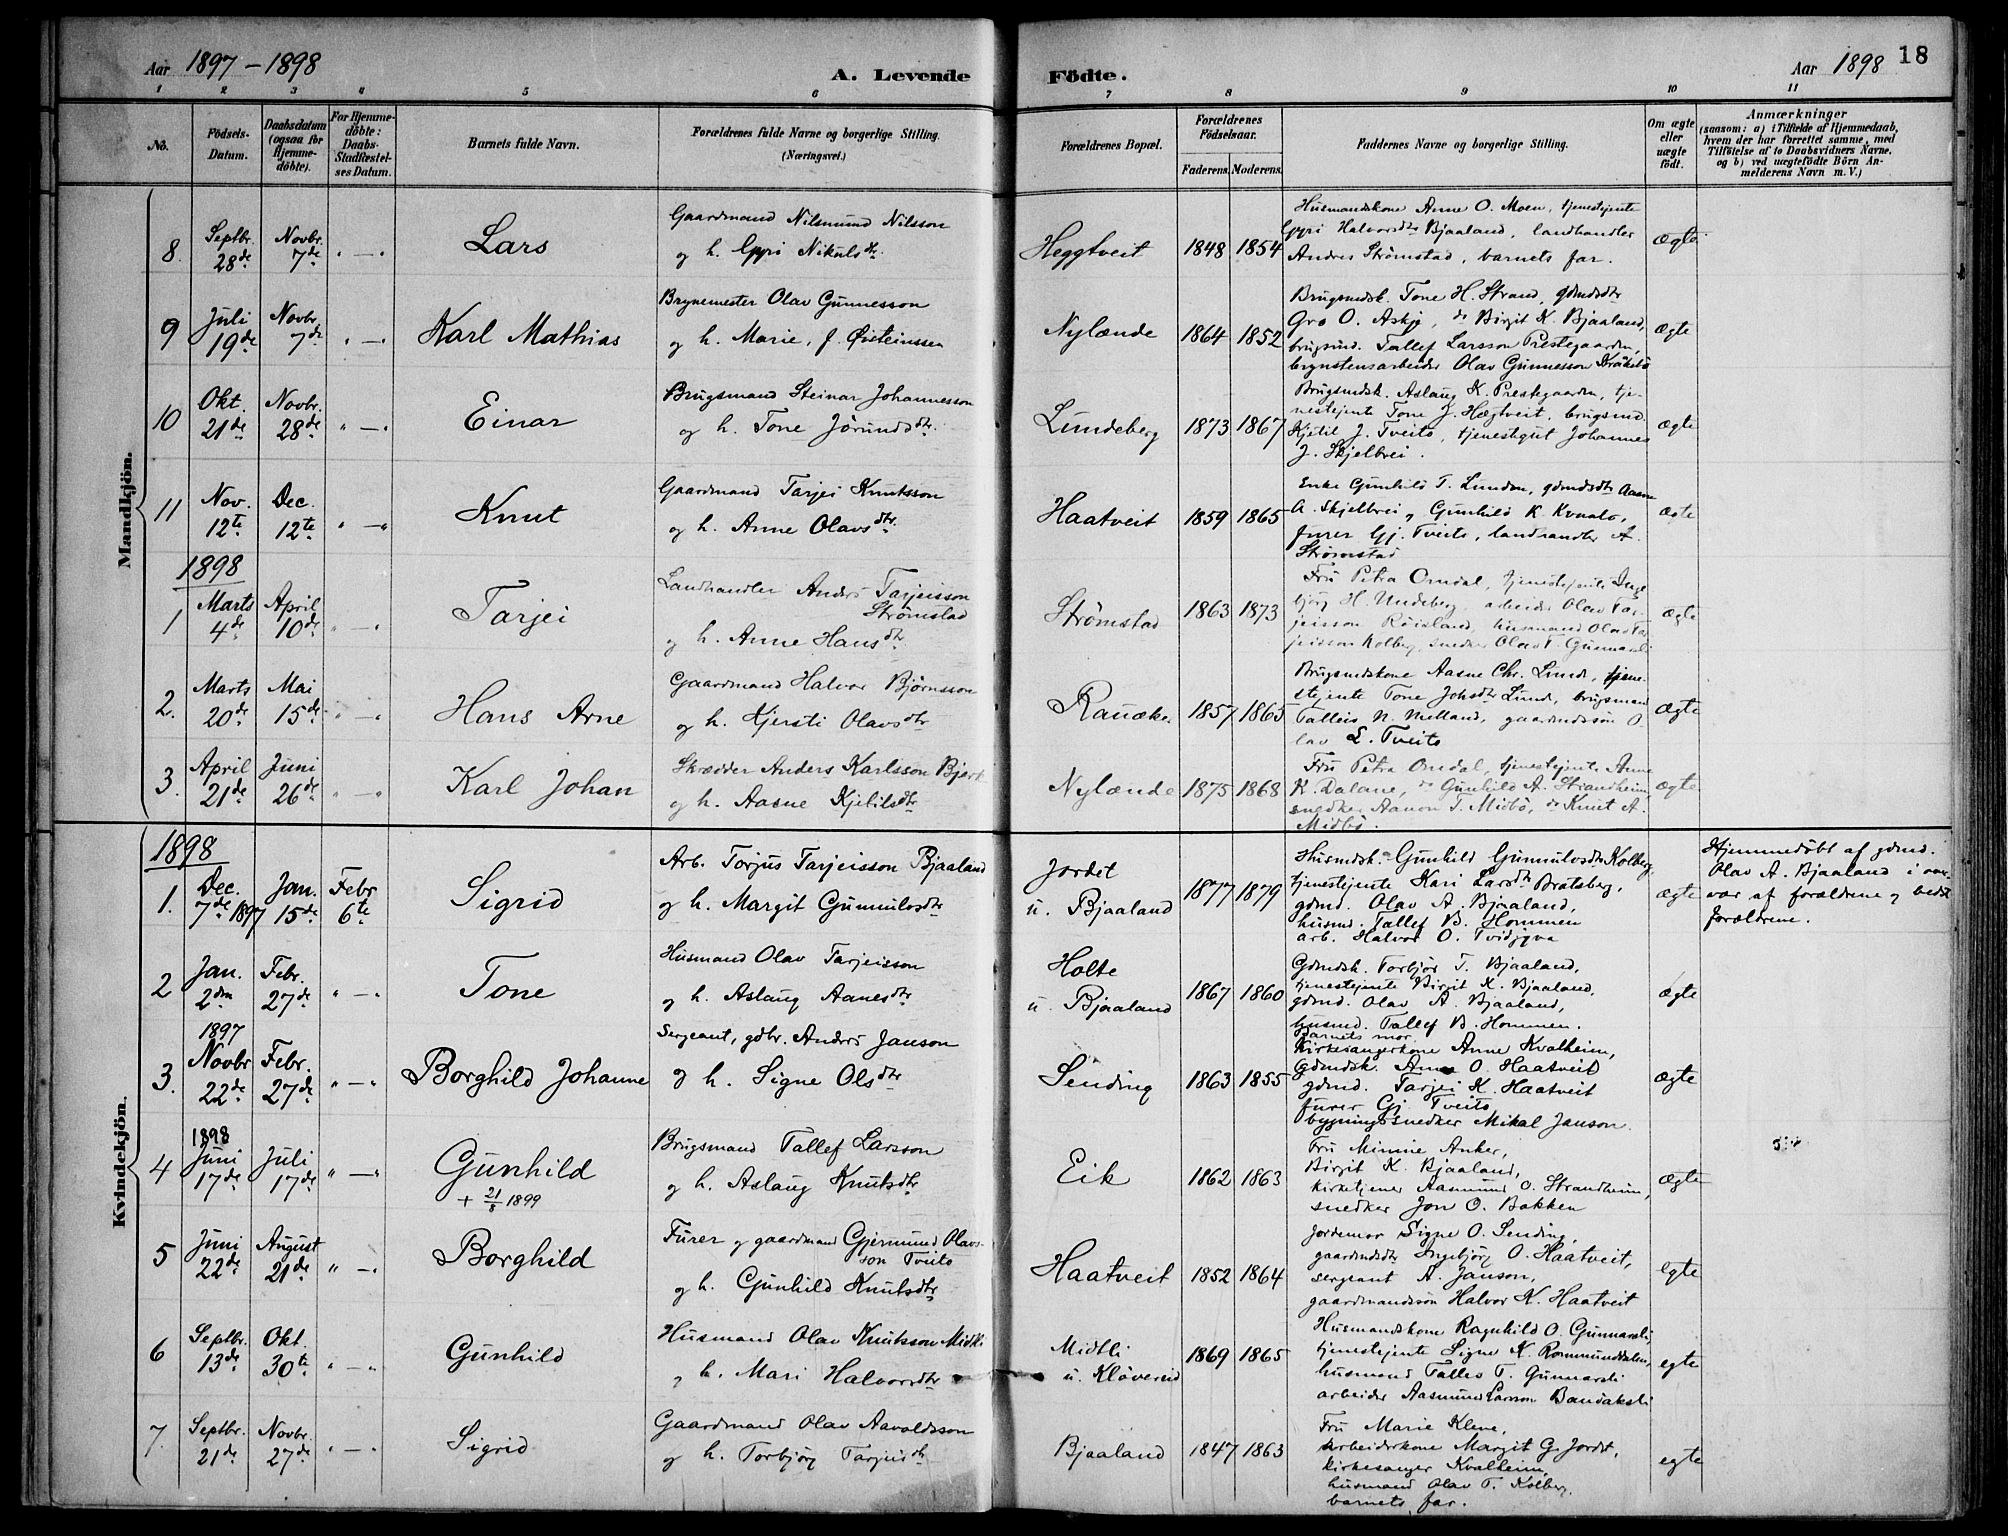 Aar 1897 – 1898
A. Levende Födte.
Aar 1898
18
1 2 3 4 5 6 7 8 9 10 11
No.
Födsels-Datum.
Daabsdatum (ogsaa for Hjemme-döbte).
For Hjemme-döbte: Daabs-Stadfæstel-ses Datum.
Barnets fulde Navn.
Forældrenes fulde Navne og borgerlige Stilling.
(Næringsvei.)
Forældrenes Bopæl.
Forældrenes Födselsaar.
Faderens. Moderens.
Faddernes Navne og borgerlige Stilling.
Om ægte eller uægte födt.
Anmærkninger
(saasom: a) i Tilfælde af Hjemmedaab,
hvem der har forrettet samme, med
Tilföielse af to Daabsvidners Navne,
og b) ved uægtefödte Börn An-
melderens Navn m. V.)
Mandkjön.
8. Septbr. 28de Novbr. 7de " — " Lars
Gaardmand Nilsmund Nilsson
og h. Gyri Nikulsdtr.
Heggtveit 1848 1854
Husmandskone Anne O. Moen, tjenestjente
Gyri Halvorsdtr Bjaaland, landhandler
Andres Strømstad, barnets far.
ægte
9 Juli 19de Novbr. 7de " — " Karl Mathias
Brynemester Olav Gunnesson
og h. Marie, f. Øisteinssen
Nylænde 1864 1852
Brugsmdsk. Tone H. Strand, gdmdsdtr
Gro O. Askje, do Birgit K. Bjaaland,
brugsmd. Tallef Larsson Prestegaarden,
brynstensarbeider Olav Gunnesson
ægte
10 Okt. 21de Novbr. 28de " — " Einar
Brugsmand Steinar Johannesson
og h. Tone Jörundsdtr.
Lundeberg 1873 1867
Brugsmdsk. Aslaug K. Prestegaarden, tje-
nestejente Tone J. Hægtveit, brugsmd.
Kjetil J. Tveito, tjenestgut Johannes
J. Skjelbrei.
ægte
11 Nov. 12te Dec. 12te " — " Knut
Gaardmand Tarjei Knutsson
og h. Anne Olavsdtr.
Haatveit 1859 1865
Enke Gunhild T. Lunden, gdmdsdtr Aasne
A. Skjelbrei og Gunhild K. Kvaalo,
furer Gj. Tveito, landhandler A.
Strømstad
ægte
1898
1 Marts 4de April 10de " — " Tarjei
Landhandler Andres Tarjeisson
Strømstad
og h. Anne Hansdtr
Strømstad 1863 1873
Fru Petra Omdal, tjenestejente Inge
björg H. Undeberg, arbeider Olav Tar-
jeisson Röisland, husmand Olav Tar
jeisson Kolberg, snedker Olav T. Gunnarsli
ægte
2. Marts 20de Mai 15de " — " Hans Arne
Gaardmand Halvor Bjørnsson
og h. Kjersti Olavsdtr
Rauæke. 1857 1865
Brugsmdskone Aasne Chr. Lund, tjen-
stejente Tone Johsdtr Lund, brugsmand
Talleis N. Midland, gaardmdssön O
lav L. Tveito
ægte
3. April 21de Juni 26de " — " Karl Johan
Skrædder Anders Karlsson
og h. Aasne Kjetilsdtr
Nylænde 1875 1868
Fru Petra Omdal, tjenestejente Anne
K. Dalane, do Gunhild A. Strandheim,
snedker Aanon T. Midbö, do Knut A.
Midbö.
ægte
Kvindekjön.
1898
1. Dec. 7de 1897 Jan. 15de Febr 6te Sigrid
Arb. Torjus Tarjeisson Bjaaland
og h. Margit Gunnulvsdtr
Jordet
u. Bjaaland 1877 1879
Husmdsk. Gunhild Gunnulvsdtr Kolberg,
tjenestejente Kari Larsdtr Bratsberg,
gdmd. Olav A. Bjaaland,
husmd. Tallef B. Hommen
arb. Halvor O.
ægte
Hjemmedøbt af gdmd.
Olav A. Bjaaland i nær-
vær af forældrene og bedst
forældrene.
2 Jan. 2den Febr. 27de " — " Tone
Husmand Olav Tarjeisson
og h. Aslaug Aanesdtr.
Holte
u. Bjaaland 1867 1860
Gdmdsk. Torbjør T. Bjaaland,
tjenestejente Birgit K. Bjaaland,
gdmd. Olav A. Bjaaland,
husmd. Tallef B. Hommen.
ægte
3. 1897 Novbr 22de Febr. 27de " — " Borghild Johanne
Sergeant, gdbr. Andres Janson
og h. Signe Olsdtr
Sending 1863 1855
Barnets mor
Kirkesangerkone Anne Kvalheim,
Gdmdsk. Anne O. Haatveit
gdmd. Tarjei K. Haatveit
furer Gj. Tveito,
bygningssnedker Mikal Janson.
ægte
4 1898 Juni 17de Juli 17de " — " Gunhild
+ 21/8 1899
Brugsmand Tallef Larsson
og h. Aslaug Knutsdtr
Eik 1862 1863
Fru Minnie Anker,
Birgit K. Bjaaland,
kirketjener Aasmund O. Strandheim,
snedker Jon O. Bakken
ægte
5 Juni 22de August 21de " — " Borghild
Furer og gaardmand Gjermund Olavs-
son Tveito
og h. Gunhild Knutsdtr
Haatveit 1852 1864
Jordemor Signe O. Sending,
gaardmdsdtr Ingebjörg O. Haatveit,
sergeant A. Janson,
gaardmandssön Halvor K. Haatveit
egte
6 Septbr. 13de Okt. 30te " — " Gunhild
Husmand Olav Knutsson Midtli
og h. Mari Halvorsdtr
Midtli
u. Kløverud 1869 1865
Husmandskone Ragnhild O. Gunnarsli
tjenestejente Signe K. Rommunddalen,
husmand Talleo T. Gunnarsli
arbeider Aasmund Larson Bandaksli
egte
7. Septbr. 21de Novbr. 27de " — " Sigrid
Gaardmand Olav Aavoldsson
og h. Torbjørg Tarjeisdtr
Bjaaland 1847 1863
Fru Marie Kleve,
arbeiderkone Margit G. Jordet,
kirkesanger Kvalheim,
husmand Olav T. Kolberg,
barnets far.
egte